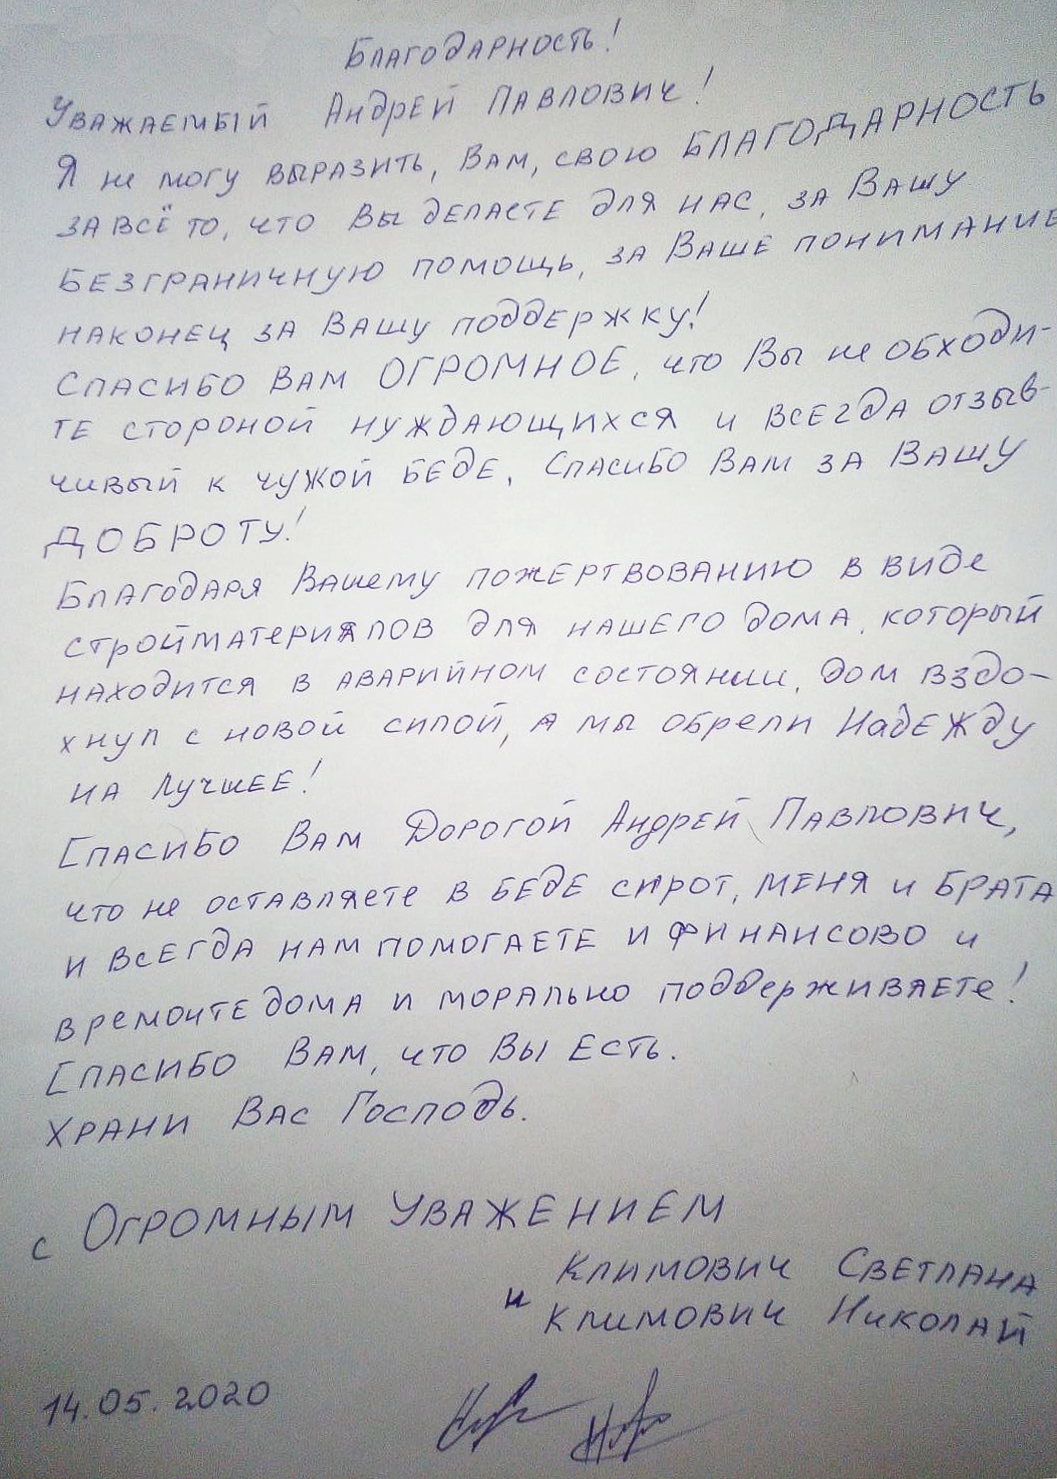 Благодарность!
Уважаемый Андрей Павлович!
Я не могу выразить, Вам, свою БЛАГОДАРНОСТЬ
за всё то, что Вы делаете для нас, за Вашу
безграничную помощь, за Ваше понимание
наконец за Вашу поддержку!
Спасибо Вам ОГРОМНОЕ, что Вы не обходи-
те стороной нуждающихся и всегда отзыв-
чивый к чужой беде, Спасибо Вам за Вашу
ДОБРОТУ!
Благодаря Вашему пожертвованию в виде
стройматериялов для нашего дома, который
находится в аварийном состоянии, дом вздо-
хнул с новой силой, а мы обрели Надежду
на Лучшее!
Спасибо Вам Дорогой Андрей Павлович,
что не оставляете в беде сирот, меня и брата
и всегда нам помогаете и финансово и
в ремонте дома и морально поддерживаете!
Спасибо Вам, что Вы Есть.
Храни Вас Господь.
с Огромным Уважением
Климович Светлана
и Климович Николай
14.05.2020